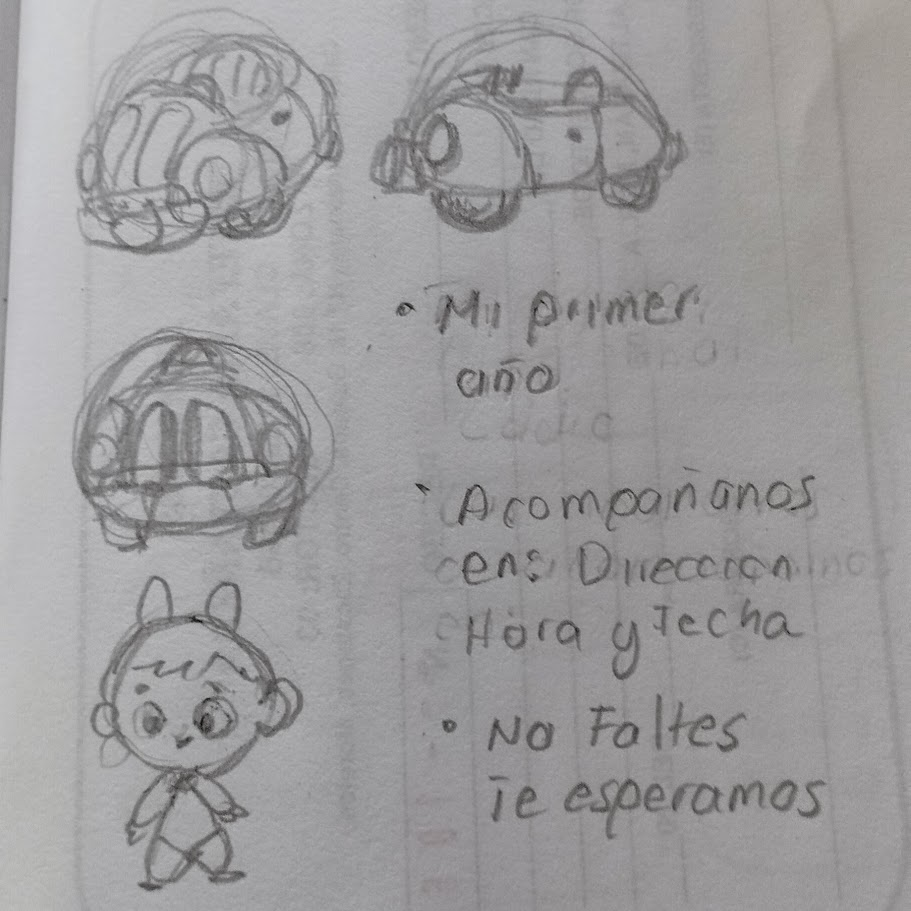 • Mi primer
año
• Acompañanos
en: Direccion
Hora y Fecha
• No Faltes
Te esperamos